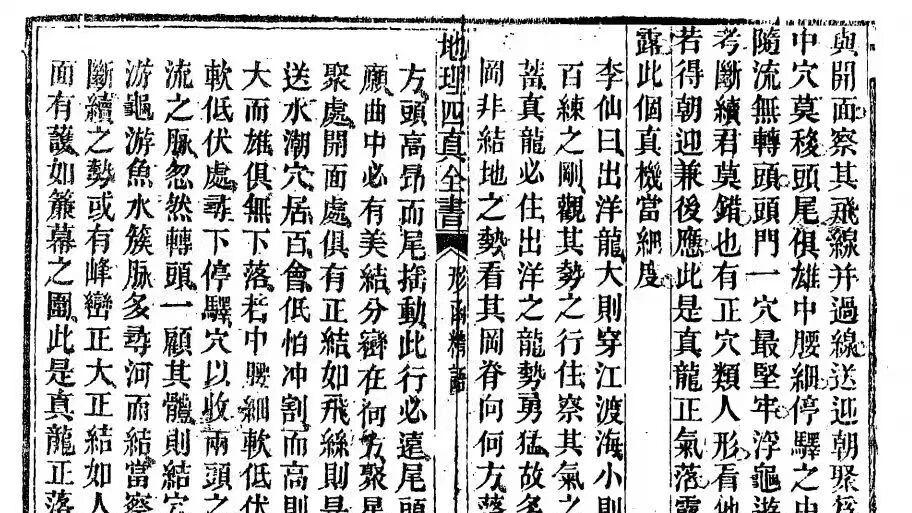 與開面察其飛線并過線送迎朝聚
中穴莫移頭尾俱雄中腰細停驛之中
隨流無轉頭頭門一穴最堅牢浮龜遊
考斷續君莫錯也有正穴類人形看他
若得朝迎兼後應此是真龍正氣落
露此個真機當細度
李仙曰出洋龍大則穿江渡海小則
百練之剛觀其勢之行住察其氣之
蓄真龍必住出洋之龍勢勇猛故多
岡非結地之勢看其岡脊向何方落
地理四真全書 形函精語
方頭高昂而尾搖動此行必遠尾頭
顧曲中必有美結分巒在何方聚星
聚處開面處俱有正結如飛絲則是
送水潮穴居百會低怕冲割而高則
大而雄俱無下落若中腰細軟低伏
軟低伏處尋下停驛穴以收兩頭之
流之脉忽然轉頭一顧其體則結穴
游龜游魚水簇脉多尋河而結當察
斷續之勢或有峰巒正大正結如人
面有護如簾幕之圍此是真龍正落